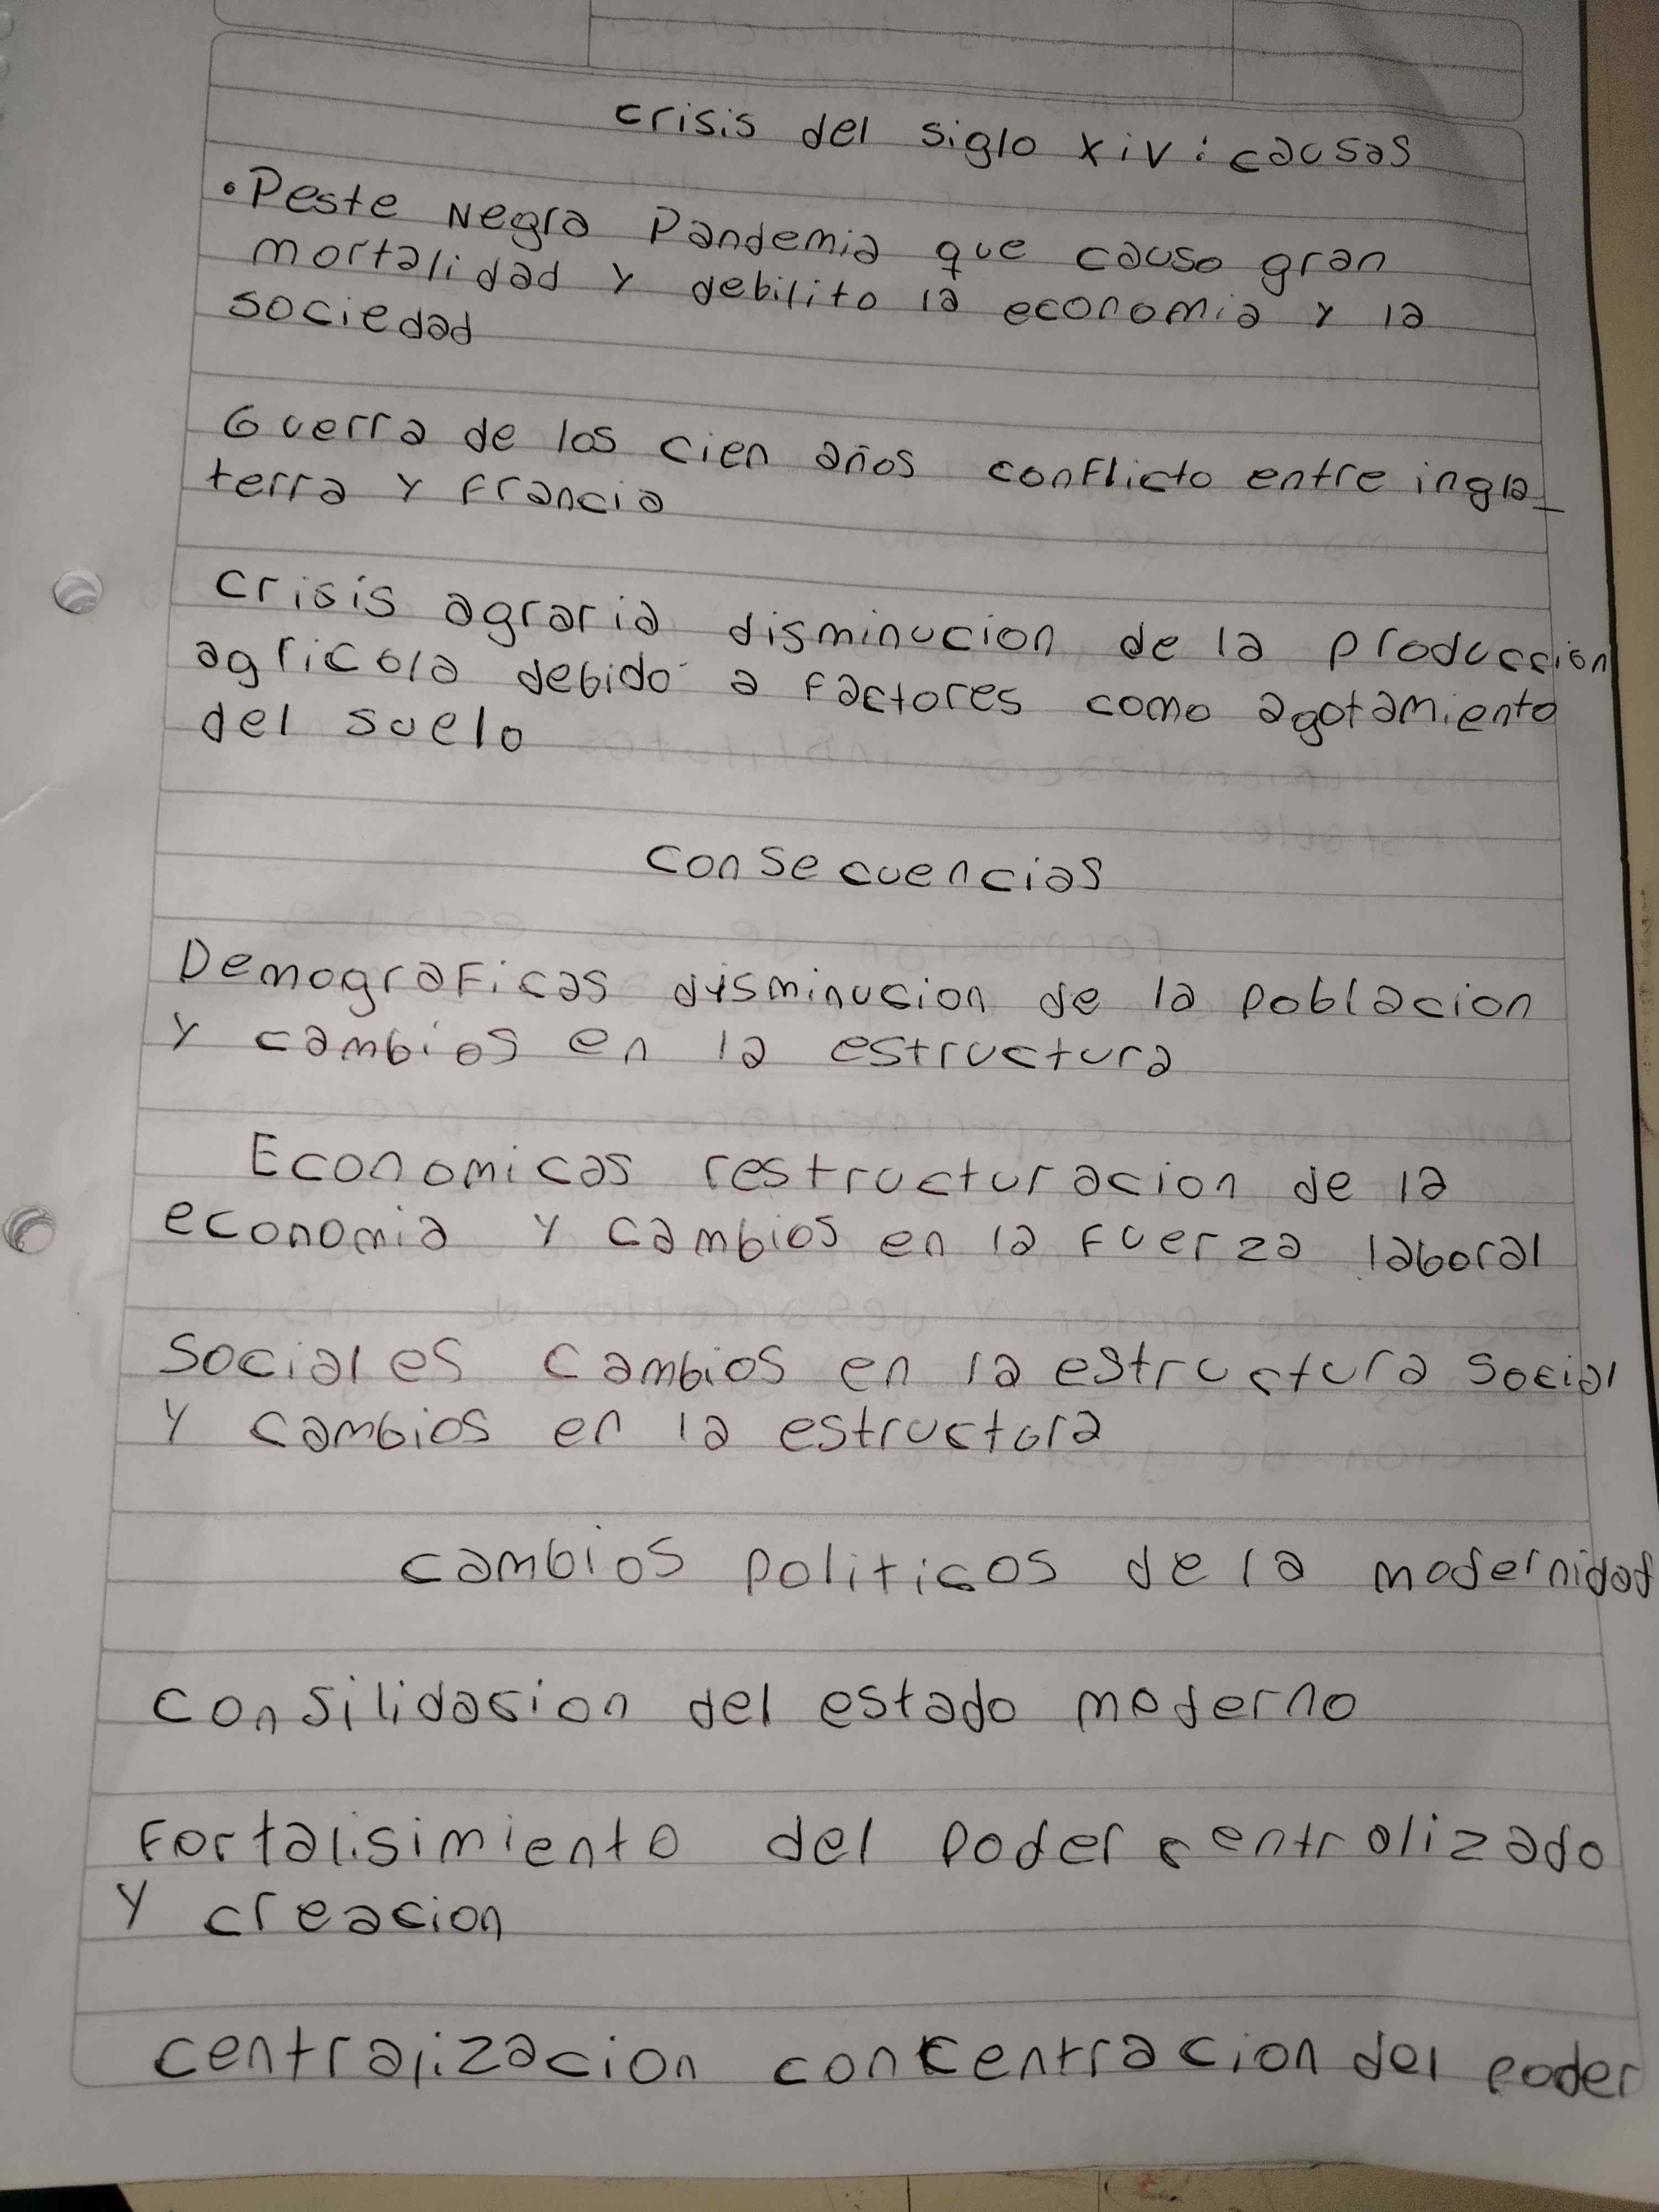 crisis del siglo xiv: causas
• Peste Negra Pandemia que causo gran
mortalidad y debilito la economia y la
sociedad
Guerra de los cien años conflicto entre ingla_
terra y Francia
crisis agraria disminucion de la produccion
agricola debido a factores como agotamiento
del suelo
consecuencias
Demograficas dysminucion de la poblacion
y cambios en la estructura
Economicas restructuracion de la
economia y cambios en la fuerza laboral
Sociales cambios en la estructura social
y cambios en la estructura
cambios politicos de la modernidad
consilidacion del estado moderno
Fortalisimiento del poder centralizado
y creacion
centralizacion concentracion del poder